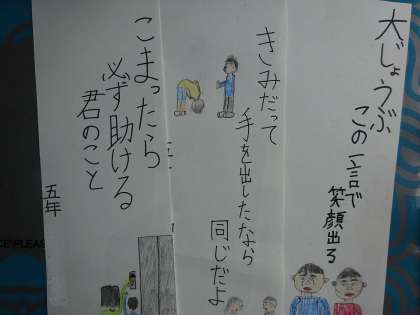 大じょうぶ
この一言で
笑顔出る
きみだって
手を出したなら
同じだよ
こまったら
必ず助ける
君のこと
五年